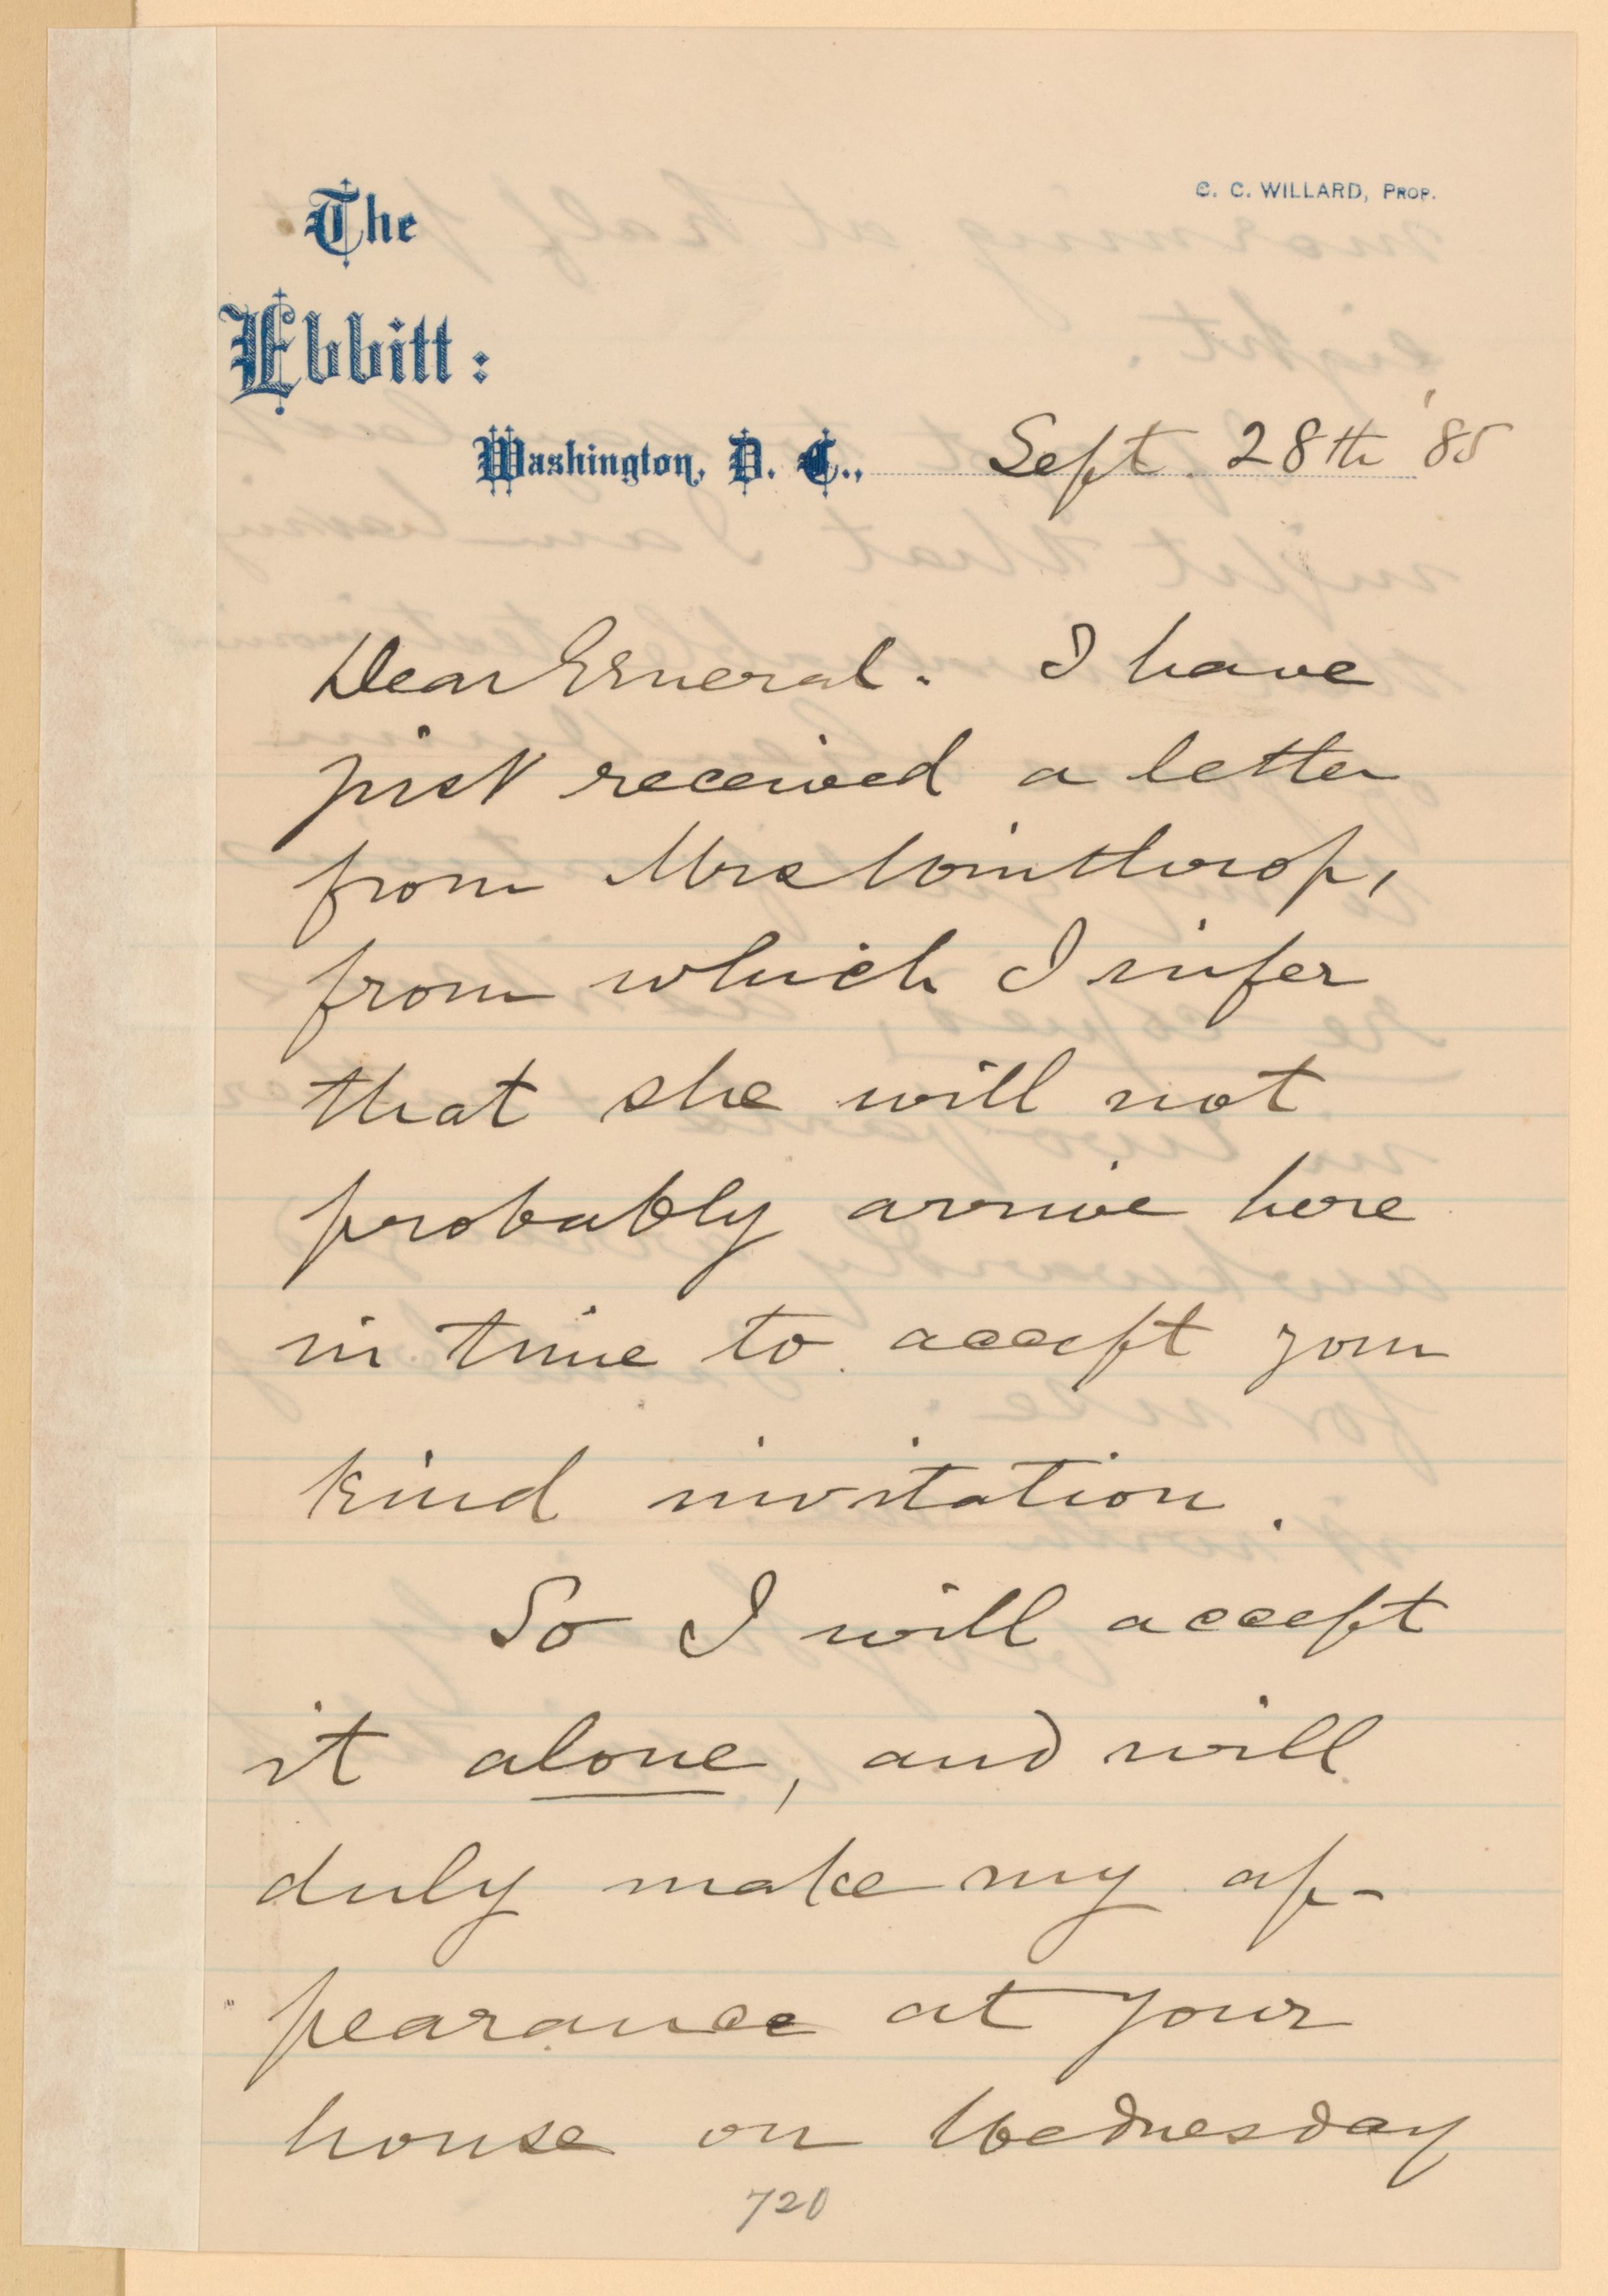 C. C. WILLARD, PROP.
The
Ebbitt:
Washington, D. C., Sept. 28th '85
Dear General. I have
just received a letter
from Mrs Winthrop,
from which I infer
that she will not
probably arrive here
in time to accept your
kind invitation.
So I will accept
it alone, and will
duly make my ap-
pearance at your
house on Wednesday
720